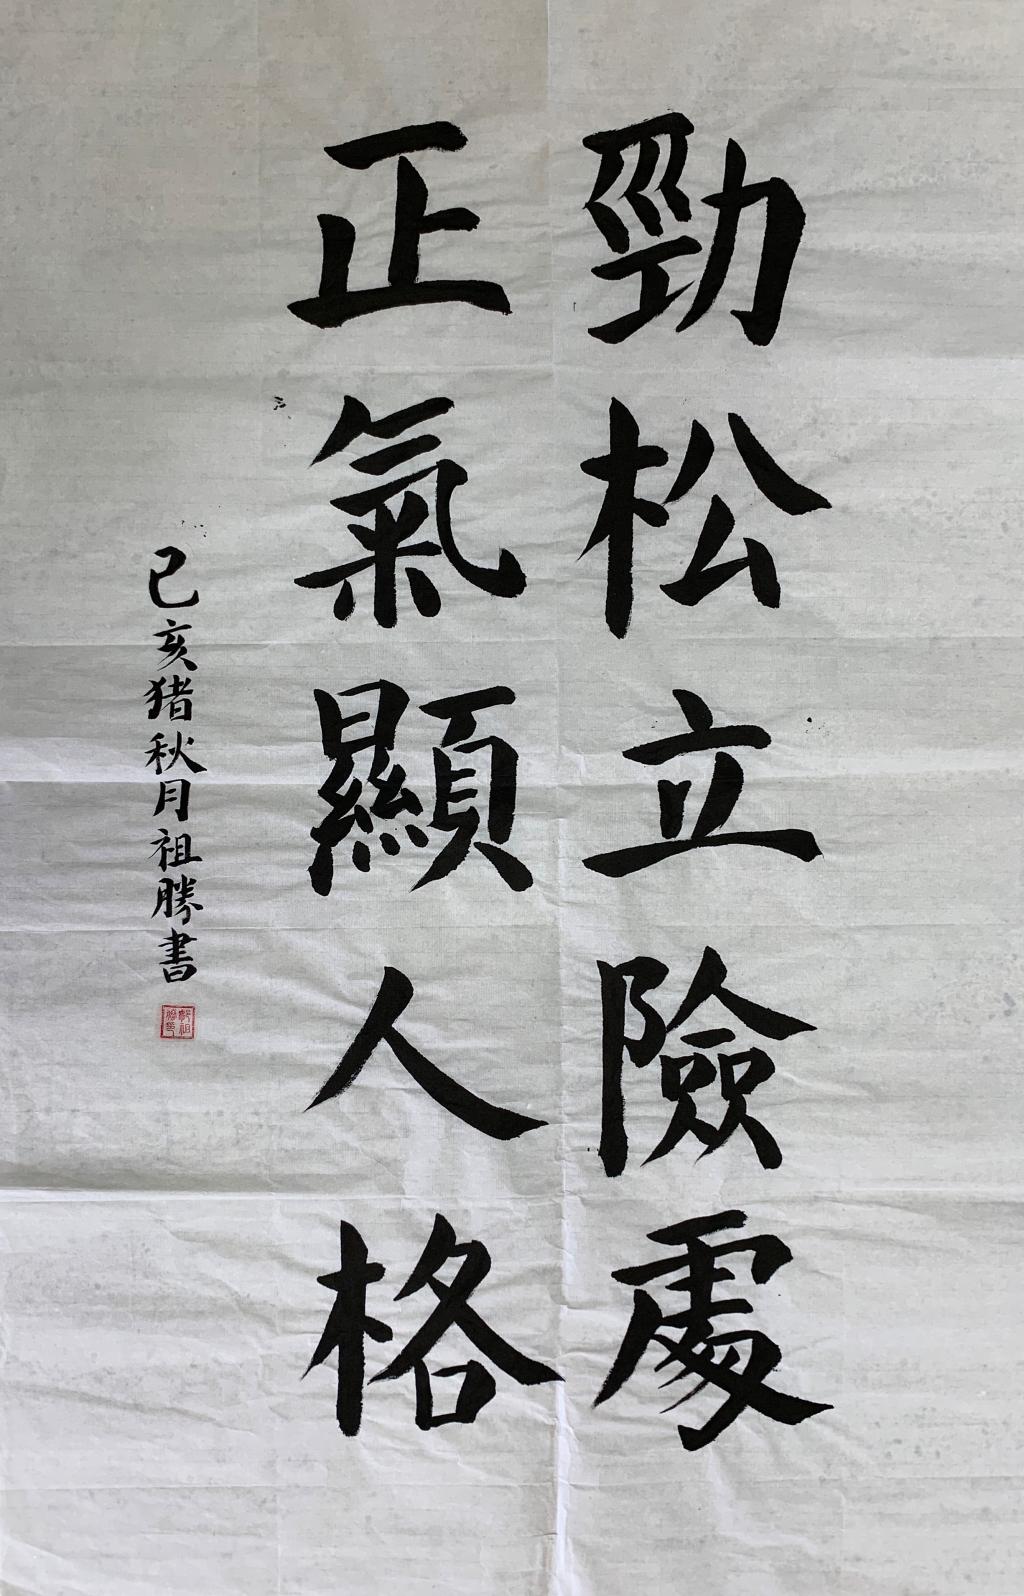 勁松立險處
正氣顯人格
己亥猪秋月祖勝書